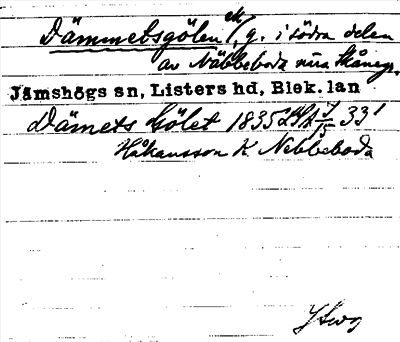 Dämmetsgölen ek/, g. i södra delen
av Näbbeboda nära Skånegr.
Jämshögs sn, Listers hd, Blek. län
Dämets Gölet 1835 33'
Håkansson K. Nebbeboda